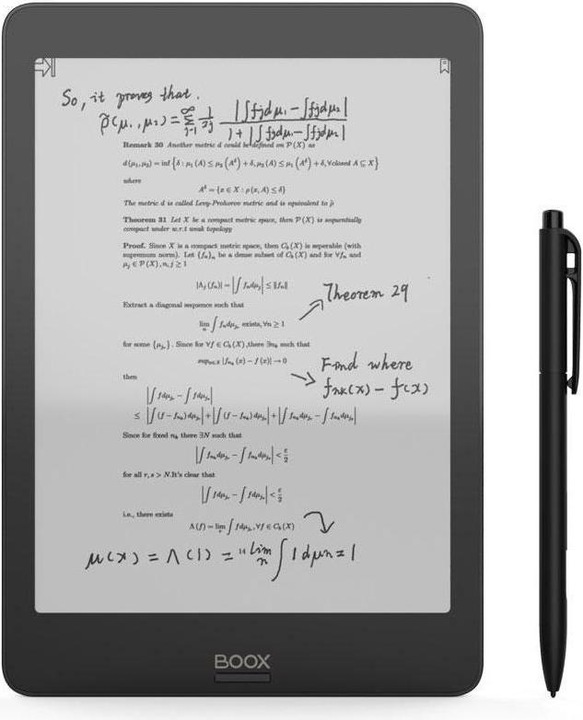 So, it proves that.
ρ̃(μ₁, μ₂) = Σ_{j=1}^{∞} 1/2j |∫fjdμ₁ − ∫fjdμ₂| / 1+|∫fjdμ₁ − ∫fjdμ₂|
Remark 30 Another metric d could be defined on P(X) as
d(μ₁,μ₂) = inf{δ : μ₁(A) ≤ μ₂(A^δ) + δ, μ₂(A) ≤ μ₁(A^δ) + δ, ∀closed A ⊆ X}
where
A^δ = {x ∈ X : ρ(x, A) ≤ δ}
The metric d is called Levy-Prohorov metric and is equivalent to ρ̃
Theorem 31 Let X be a compact metric space, then P(X) is sequentially
compact under w.r.t weak topology
Proof. Since X is a compact metric space, then C_b(X) is seperable (with
supremum norm). Let {fₙ}ₙ be a dense subset of C_b(X) and for ∀fₙ and
μⱼ ∈ P(X), n, j ≥ 1
|Λⱼ(fₙ)| = |∫ fₙdμⱼ| ≤ ‖fₙ‖
Theorem 29
Extract a diagonal sequence such that
lim ∫ fₙdμⱼᵣ exists, ∀n ≥ 1
for some {μⱼᵣ}. Since for ∀f ∈ C_b(X), there ∃nₖ such that
sup |fₙₖ(x) − f(x)| → 0
Find where
fnk(x) − f(x)
then
|∫ fdμⱼᵣ − ∫ fdμⱼₛ|
≤ |∫ (f − fₙₖ)dμⱼᵣ| + |∫ (f − fₙₖ)dμⱼₛ| + |∫ fₙₖdμⱼᵣ − ∫ fₙₖdμⱼₛ|
Since for fixed nₖ there ∃N such that
|∫ fₙₖdμⱼᵣ − ∫ fₙₖdμⱼₛ| < ε/2
for all r, s > N. It's clear that
|∫ fdμⱼᵣ − ∫ fdμⱼₛ| < ε/2
i.e., there exists
Λ(f) = lim ∫ fdμⱼᵣ, ∀f ∈ C_b(X)
μ(x) = Λ(1) = "lim n ∫ 1 dμn = 1
BOOX